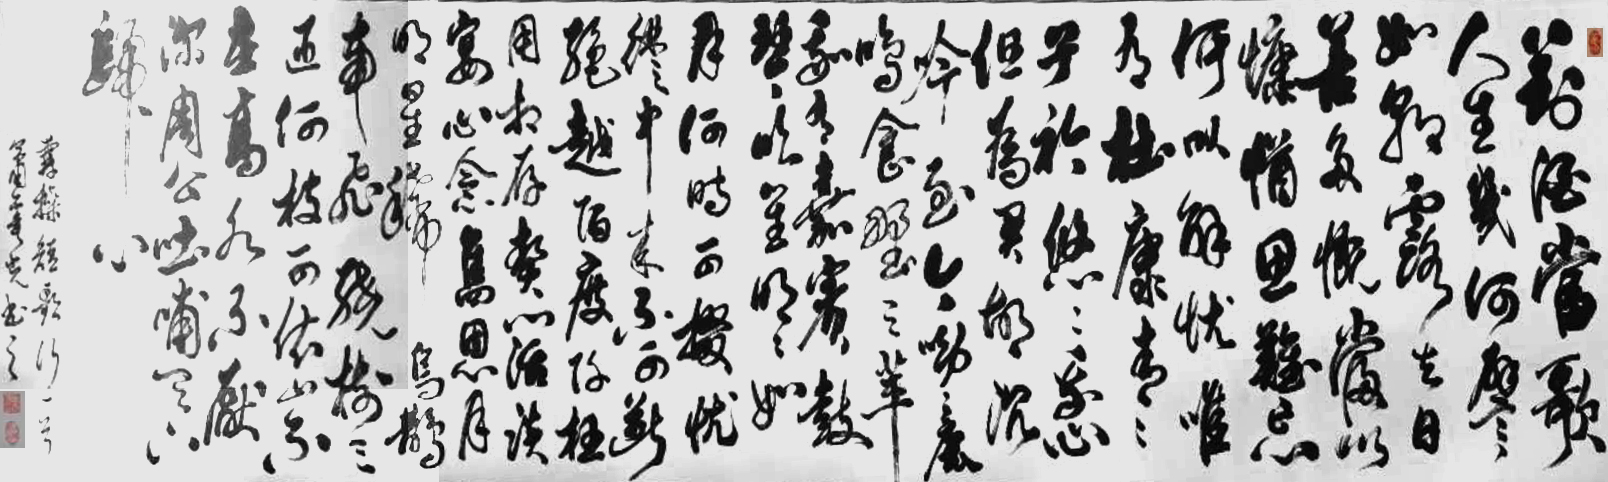 對酒當歌
人生幾何譬
如朝露去日
苦多慨當以
慷思難忘
何以解忧唯
有杜康青々
子衿悠々我心
但為君故沉
吟至今呦々鹿
鳴食野之苹
我有嘉賓鼓
瑟吹笙明々如
月何時可掇忧
從中来不可断
絶越陌度阡枉
用相存契闊談
宴心念舊恩月
明星稀烏鵲
南飛繞樹三
匝何枝可依山不
在高水不厭
深周公吐哺天下
歸心
曹操短歌行一首
書之